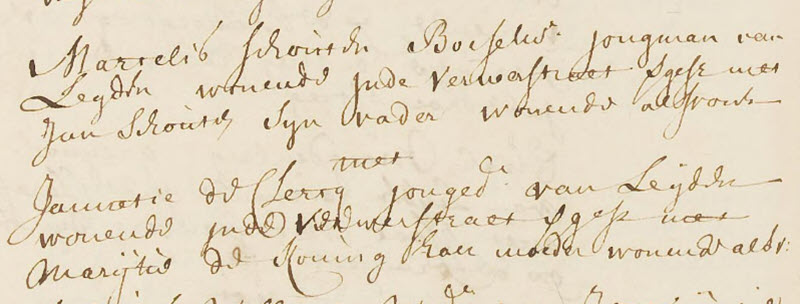 Marcelis Schouten Boeselw. jongman van
Leyden wonende jnde verwerstraet vgesz met
Jan Schouten syn vader wonende als voorn
met
Jannetie de Clercq jonged. van Leyden
wonende jnde verwerstraet vgesz met
Marijtie de Koning haer moeder wonende als v: